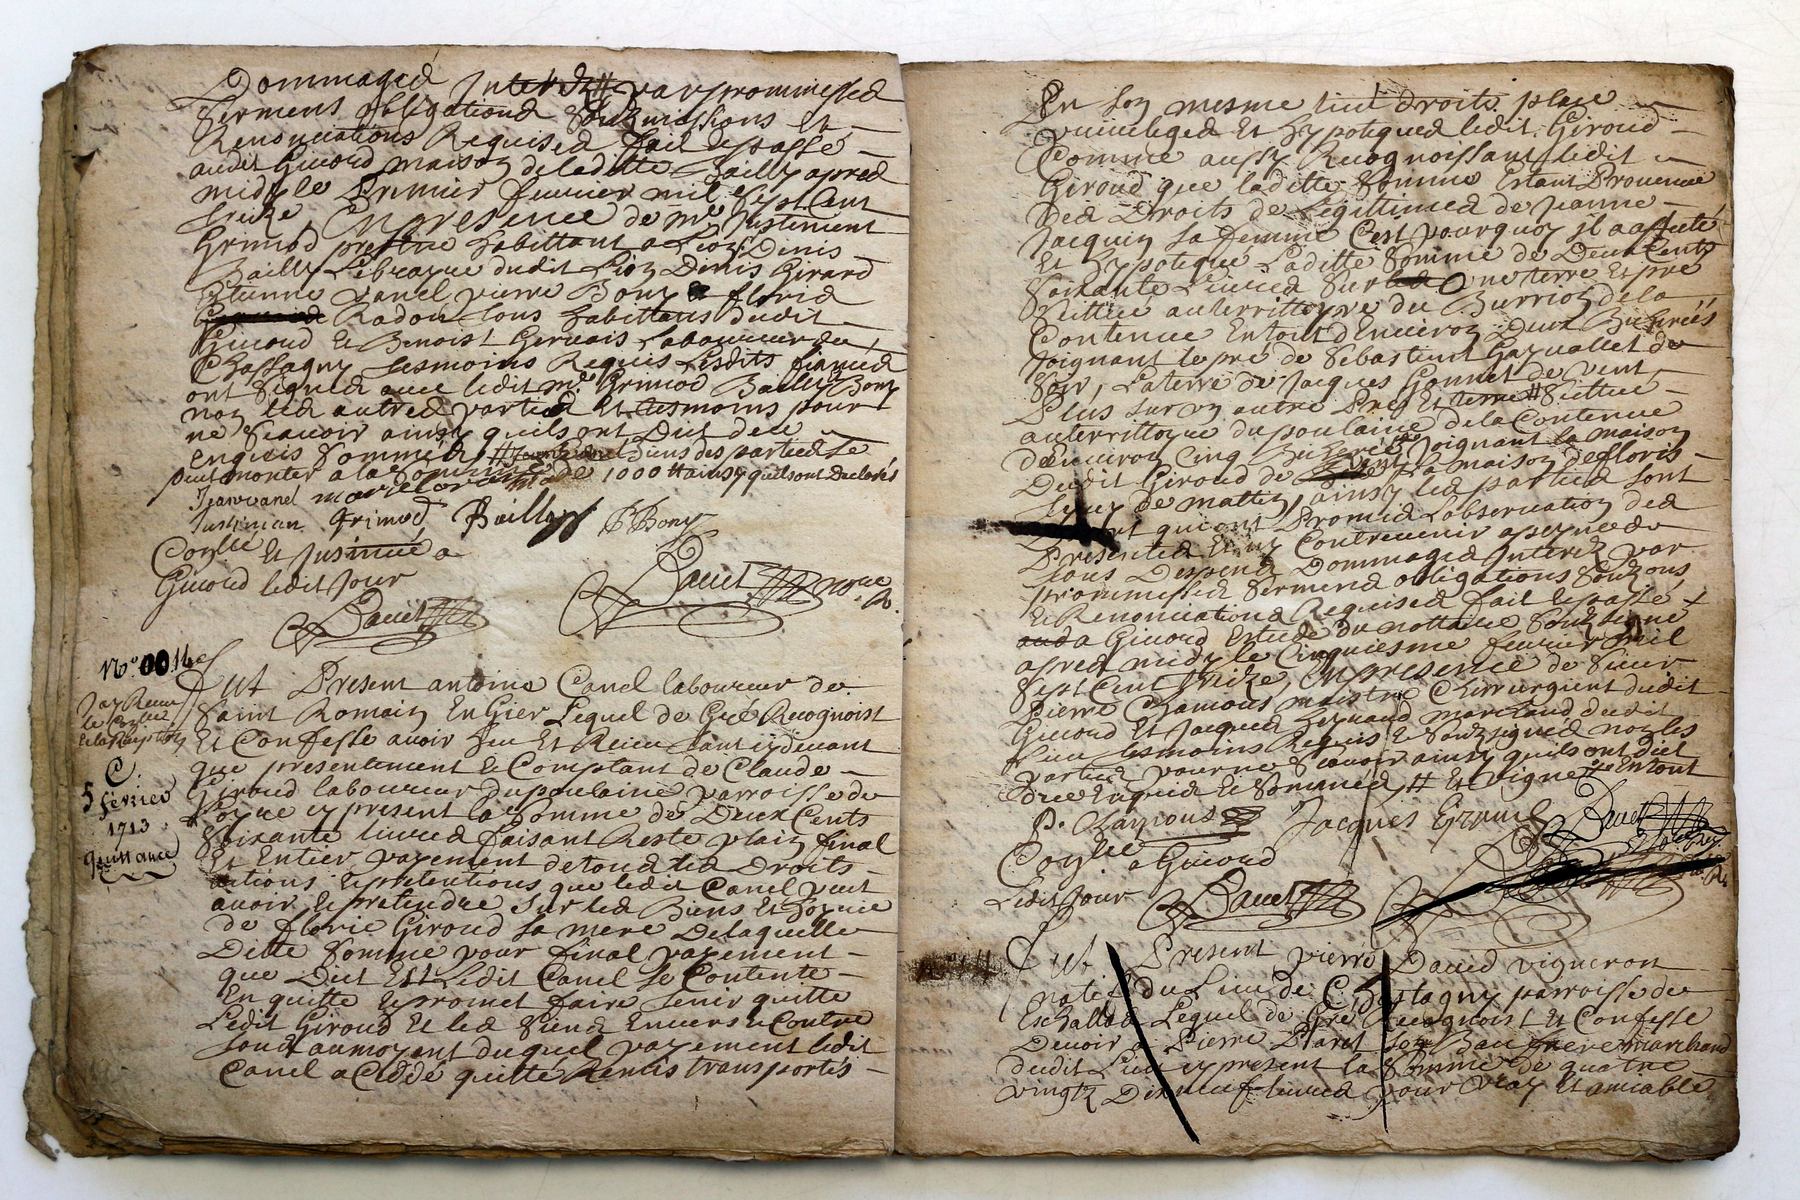 Dommaged Interetz par prommissed
sermens obligationd Soubmissions et
Renonciations Requised fait et passé
audit Giuord maison deladitte Bailly apred
midy le Premier feurier mil Sept Cent
treize En presence de mre Justinient
Grimod prestre habittant a Lion Denis
Bailly Libraque dudit Lion Denis Girard
Estienne Canel pierre Bony floris
Radon tous habittans dudit
Giuord et Benoist Geruais Laboureur de
Chassagny tesmoins Requis Lesdits fianced
ont Signed auec ledit mre Grimod Bailly Bony
non led autred partied et tesmoins pour
ne Scauoir ainsy quils ont Dit de ce
enquis Sommed biens des partied Se
peut monter a la Somme de 1000 tt ainsy quils ont Declarés
Jean Canel
Justinian Grimod Bailly P Bony
Coplie et Jnsinué a
Giuord ledit Jour
Dauet
Dauet nore R.
No. 00
5 feurier
1713
quittance
Fut Present antoine Canel laboureur de
Saint Romain En Gier Lequel de Gré Recognoist
Et Confesse auoir Heu Et Receu tant cydeuant
que presentement et Comptant de Claude
Giroud laboureur du poulaine parroisse de
cy present la Somme de Deux Cents
Soixante liured faisant Reste plain final
Et Entier payement de tous led Droits
actions et pretentions que ledit Canel peut
auoir et pretendre Sur led Biens Et hoyrie
de florie Giroud sa mere Delaquelle
Ditte Somme pour final payement
que Dict Est Ledit Canel Se Contente
En quitte et promet faire tenir quitte
Ledit Giroud Et led Siend Enuers et Contre
tous au moyent duquel payement ledit
Canel a Ceddé quitté Remis transportés
En Son mesme lieu droits place
priuileged Et hypotequed ledit Giroud
Comme aussy Recognoissant ledit
Giroud que laditte Somme Estant Prouenue
Ded Droits de Legittimed de Jeanne
Jacquin Sa femme Cest pourquoy il a affecté
Et hypotequé Laditte Somme de Deux Cents
Soixante Liured Sur Une terre Et pré
Scittué au territtoyre du Burrion de la
Contenue En tout d'Enuiron deux Bicherés
Joignant le pré de Sebastient de
Soir, La terre de Jacques Gonnet de vent
Plus Sur vn autre Pred Et terre Scittué
au territtoyre du poulaine de la Contenue
d'Enuiron Cinq Bicherés Joignant la maison
Dudit Giroud de la maison de floris
de mattin, ainsy led partied Sont
qui ont Promid L'obseruation ded
Presented Et ny Contreuenir a peyne de
tous Despend Dommaged Interetz par
prommissed sermend obligations Soubmissions
Et Renonciationd Requised fait et passé
a Giuord Estude du nottaire Soubsigné
apred midy le Cinquiesme feurier mil
Sept Cent treize, En presence de Sieur
Pierre Chamous maistre Chirrurgient dudit
Giuord Et Jacqued marchand dudit
lieu tesmoins Requis et Soubsigned non les
partied pour ne Scauoir ainsy quils ont dict
de ce Enquid et Sommed
P. Jacques
Coplie a Giuord
Ledit Jour
Dauet
Dauet
Fut Present pierre Dauid vigneron
natif du Lieu de parroisse de
Eschallad Lequel de Gré Recognoist Et Confesse
Deuoir a Pierre Son Beau frere marchand
dudit Lieu cy present la Somme de quatre
vingtz Dixneuf liured pour vray Et amiable